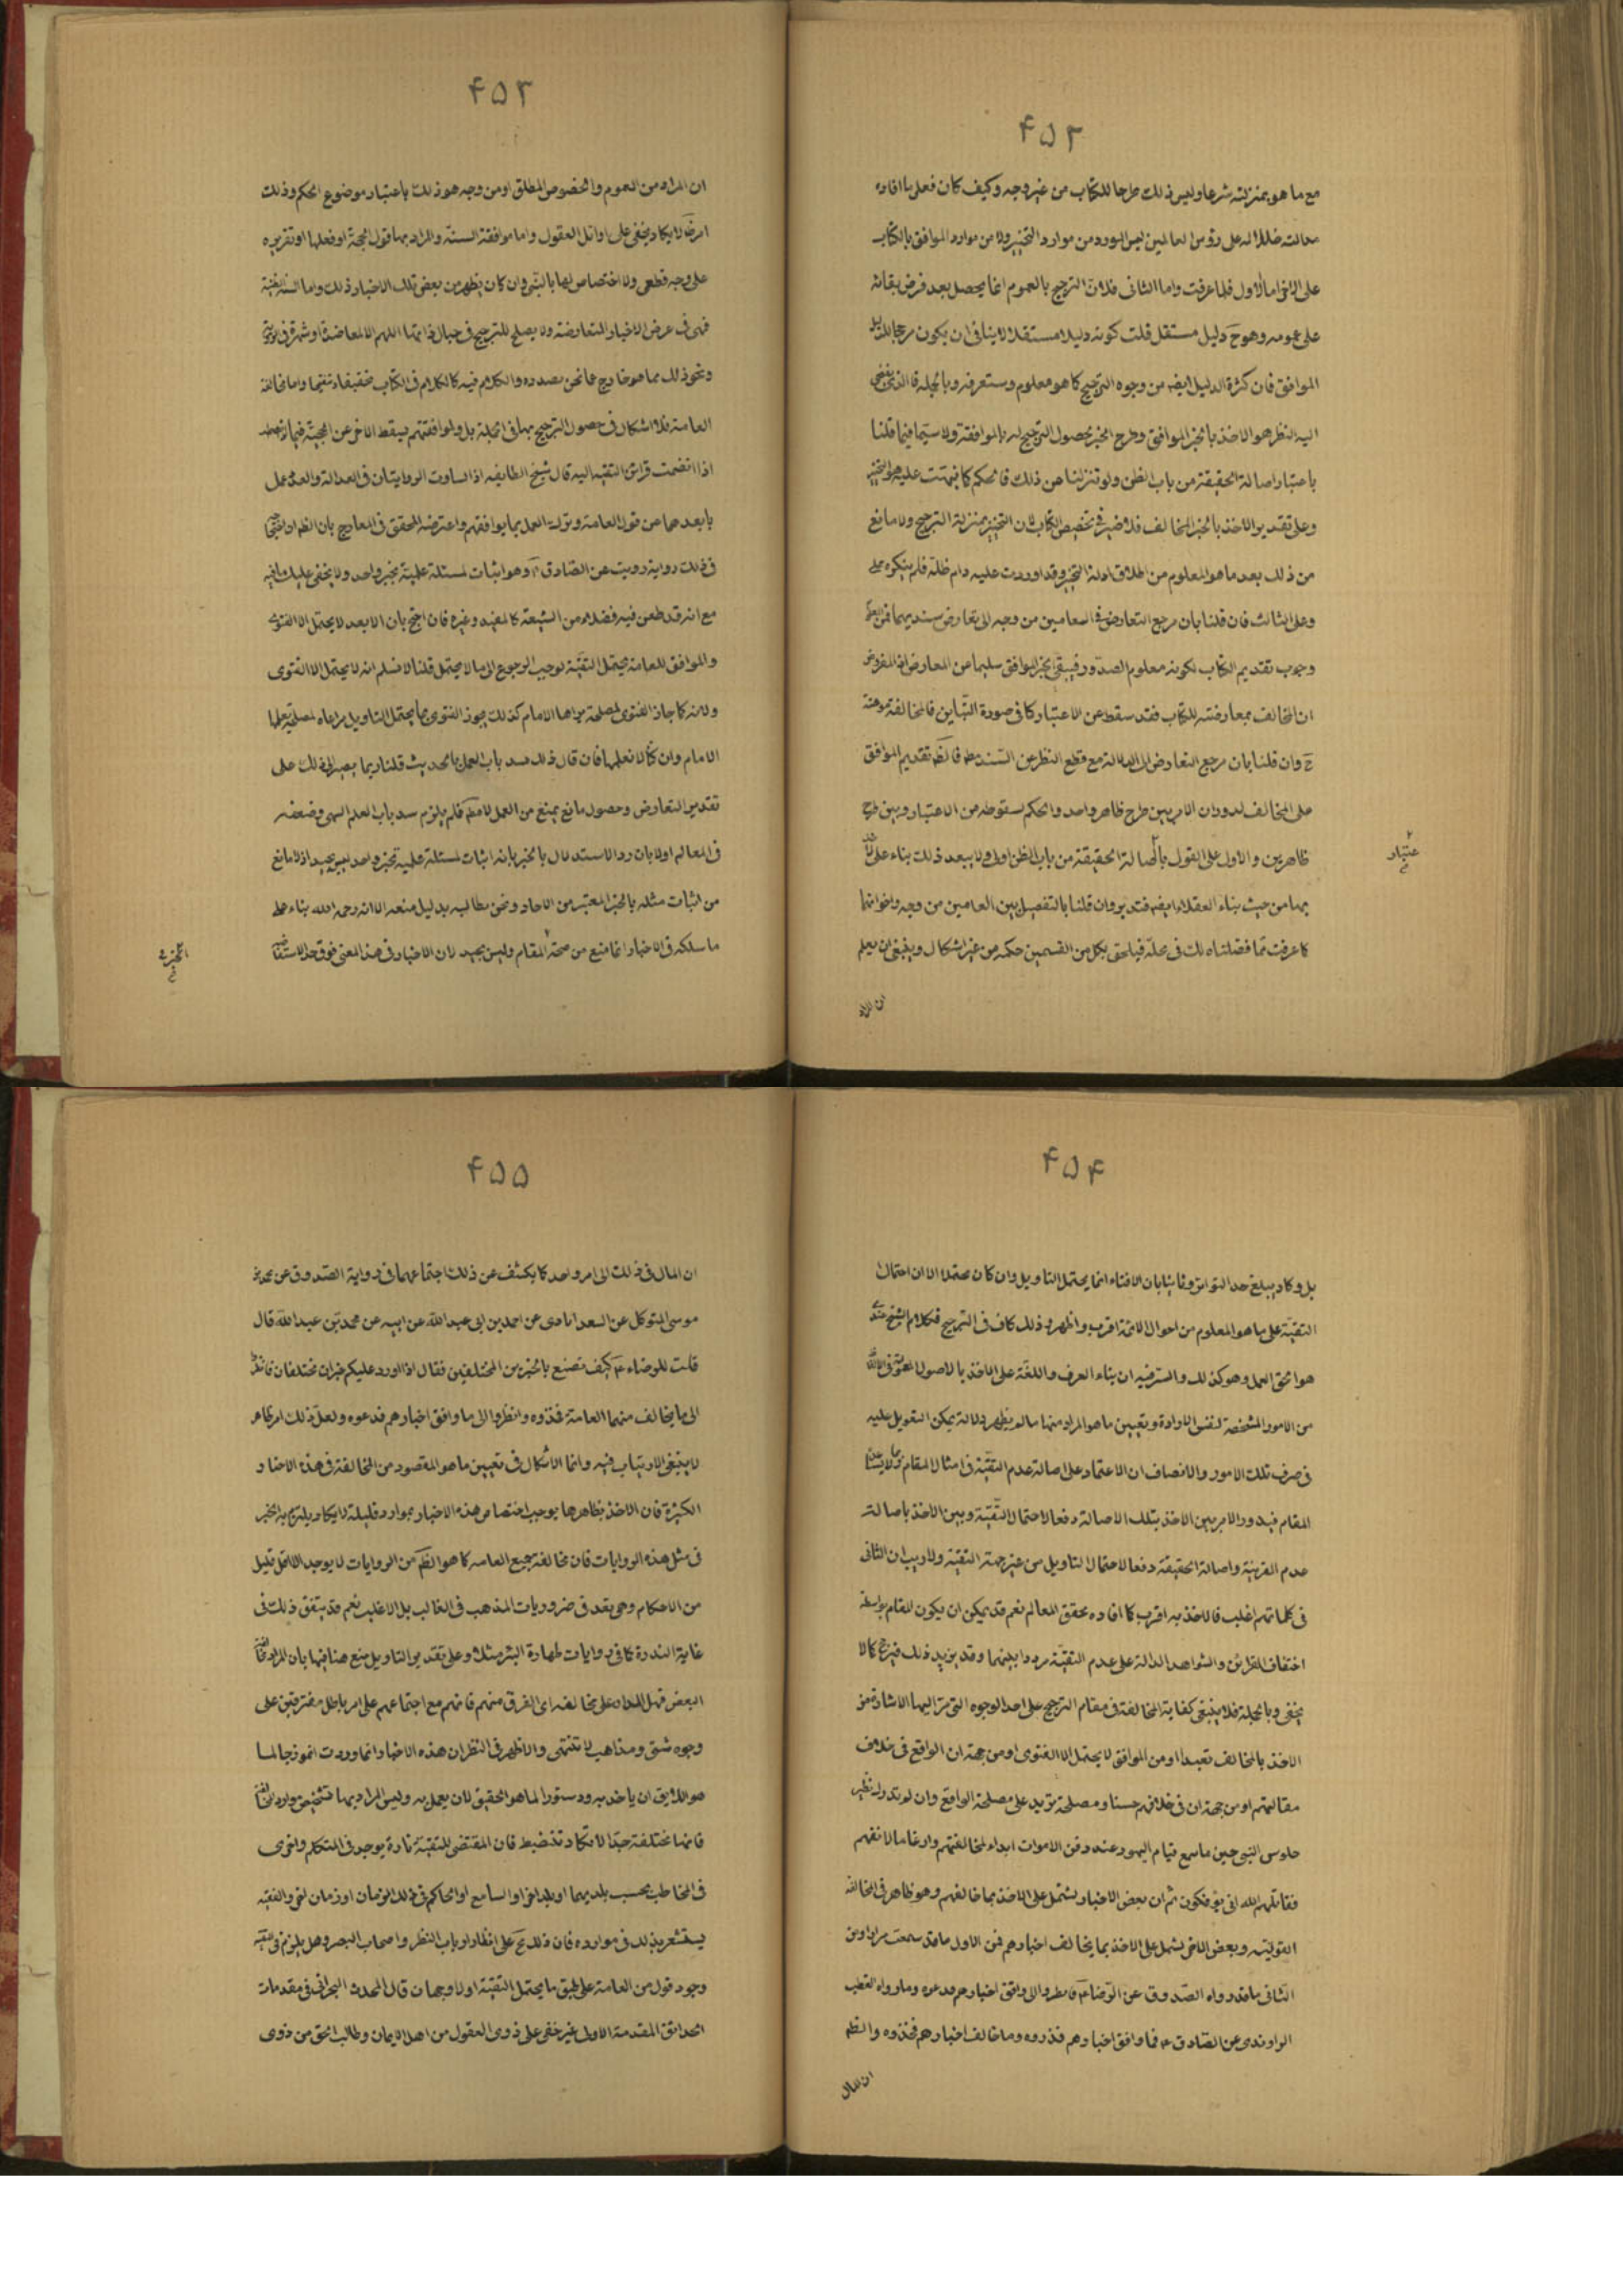 ۴۵۲
مع ما هو بمنزلته شرعا وليس ذلك طرحا للكتاب من غير وجه وكيف كان فعل ما افاده
على الاخر اما الاول فلما عرفت واما الثانى فلان الترجيح بالعموم انما يحصل بعد فرض بقائه
على عمومه وهو ح دليل مستقل قلت كونه دليلا مستقلا لا ينافى ان يكون مرجحا للدليل
الموافق فان كثرة الدليل ايضه من وجوه الترجيح كما هو معلوم وستعرفه وبالجملة فالذى يقتضى
اليه النظر هو الاخذ بالخبر الموافق وطرح الخبر لحصول الترجيح له بالموافقة ولا سيما فيما قلنا
باعتبار اصالة الحقيقة من باب الظن ولو تنزلنا عن ذلك فالحكم كما فهمت عليه هو التخيير
وعلى تقدير الاخذ بالخبر المخالف فلا ضير فى تخصيص الكتاب لان التخيير بمنزلة الترجيح ولا مانع
من ذلك بعد ما هو المعلوم من اطلاق ادلة التخيير وقد اوردت عليه دام ظله فلم ينكره
وعلى الثالث فان قلنا بان مرجع التعارض فى العامين من وجه الى تعارض سنديهما فمن
وجوب تقديم الكتاب لكونه معلوم الصدور فيبقى الخبر الموافق سليما عن المعارض اذ المفروض
ان المخالف بمعارضته للكتاب فقد سقط عن الاعتبار كما فى صورة التباين فالمخالفة موهنة
ح وان قلنا بان مرجع التعارض الى الدلالة مع قطع النظر عن السند فالظ تقديم الموافق
على المخالف لدوران الامر بين طرح ظاهر واحد والحكم لسقوطه من الاعتبار وبين طرح
ظاهرين والاول على القول باصالة الحقيقة من باب الظن اولى ولا يبعد ذلك بناء على
بها من حيث بناء العقلاء ايضه فتدبر وان قلنا بالتفصيل بين العامين من وجه واخواتها
كما عرفت مما فصلناه لك فى محله فيلحق بكل من القسمين حكمه من غير اشكال وينبغى ان يعلم
ان المراد
۴۵۳
ان المراد من العموم والخصوص المطلق او من وجه هو ذلك باعتبار موضوع الحكم وذلك
امر لا يكاد يخفى على اوائل العقول واما موافقة السنة والمراد بها قول الحجة او فعلها او تقريره
على وجه قطعى ولا اختصاص لها بالنبى وان كان يظهر من بعض تلك الاخبار ذلك واما السنة الظنية
فهى فى عرض الاخبار المتعارضة ولا يصلح للترجيح فى حيال ذاتها اللهم الا لمعاضدة او شهرة
ونحو ذلك مما هو خارج عما نحن بصدده والكلام فيه كالكلام فى الكتاب واما مخالفة
العامة فلا اشكال فى حصول الترجيح بها فى الجملة بل ولموافقتهم يسقط الاخر عن الحجية
اذا انضمت قرائن التقيه اليه قال شيخ الطايفه اذا تساوت الروايتان فى العدالة والعدد عمل
بابعدهما من قول العامة وترك العمل بما يوافقهم واعترضه المحقق فى المعارج بان الظ ان احتجاجه
فى ذلك رواية رويت عن الصادق ع وهو اثبات لمسئلة علمية بخبر واحد ولا يخفى عليك ما فيه
مع انه قد طعن فيه فضلاء من الشيعة كالمفيد وغيره فان احتج بان الابعد لا يحتمل الا الفتوى
والموافق للعامة يحتمل التقية فوجب الرجوع الى ما لا يحتمل قلنا لا نسلم انه لا يحتمل الا الفتوى
ولانه كما جاز الفتوى لمصلحة يراها الامام كذلك يجوز الفتوى بما يحتمل التاويل مراعاه لمصلحة يعلمها
الامام وان كنا لا نعلمها فان قال ذلك يسد باب العمل بالحديث قلنا ربما يصير الى ذلك على
تقدير التعارض وحصول مانع يمنع من العمل لا مطلقا فلم يلزم سد باب العلم انتهى وضعفه
فى المعالم اولا بان رد الاستدلال بالخبر بانه اثبات لمسئلة علمية بخبر واحد ليس بجيد اذ لا مانع
من اثبات مثله بالخبر المعتبر من الاحاد ونحن نطالبه بدليل منعه الا انه رحمه الله بناء
ما سلكه فى الاخبار انما منع من صحة المقام وليس بجيد لان الاخبار فى هذا المعنى فوق حد الاستفا
۴۵۴
بل وكاد يبلغ حد التواتر وثانيا بان الافتاء انما يحتمل التاويل وان كان محتملا الا ان احتمال
التقية على ما هو المعلوم من احوال الائمة اقرب واظهر وذلك كاف فى الترجيح فكلام الشيخ عندى
هو الحق العمل وهو كذلك والسر فيه ان بناء العرف واللغة على الاخذ بالاصول
من الامور المشخصة لنفس الارادة وتعيين ما هو المراد منها ما لم يظهر دلالة يمكن التعويل عليه
فى صرف تلك الامور والانصاف ان الاعتماد على اصالة عدم التقية فى امثال المقام
المقام فيدور الامر بين الاخذ بتلك الاصالة دفعا لاحتمال التقية وبين الاخذ باصالة
عدم القرينة واصالة الحقيقة دفعا لاحتمال التاويل من غير جهة التقية ولا ريب ان الثانى
فى كلماتهم اغلب فالاخذ به اقرب كما افاده محقق المعالم نعم قد يمكن ان يكون المقام بواسطة
اختفاف القرائن والشواهد الدالة على عدم التقية مرددا بينهما وقد يزيد ذلك فيرجح كما لا
يخفى وبالجملة فلا ينبغى كفاية المخالفة فى مقام الترجيح على احد الوجوه التى مر اليها الاشارة من
الاخذ بالمخالف تعبدا او من الموافق لا يحتمل الا الفتوى او من جهة ان الواقع فى خلاف
مقالتهم او من جهة ان فى خلافهم حسنا ومصلحة تزيد على مصلحة الواقع وان لم ندرك نظير
جلوس النبى حين ما سمع قيام اليهود عند دفن الاموات ابداء لمخالفتهم وارغاما لانفهم
فقاتلهم الله انى يؤفكون ثم ان بعض الاخبار يشتمل على الاخذ بما خالفهم وهو ظاهر فى المخالفة
القولية وبعض الاخر يشتمل على الاخذ بما يخالف اخبارهم فمن الاول ما قد سمعت مرارا ومن
الثانى ما قد رواه الصدوق عن الرضا ع فانظروا الى ما وافق اخبارهم فدعوه وما رواه القطب
الراوندى عن الصادق ع فما وافق اخبارهم فذروه وما خالف اخبارهم فخذوه والظ
ان المال
۴۵۵
ان المال فى ذلك الى امر واحد كما يكشف عن ذلك اجتماعهما فى رواية الصدوق عن محمد بن
موسى المتوكل عن السعدابادى عن احمد بن ابى عبدالله عن ابيه عن محمد بن عبدالله قال
قلت للرضاء ع كيف نصنع بالخبرين المختلفين فقال اذا اورد عليكم خبران مختلفان فانظروا
الى ما يخالف منهما العامة فخذوه وانظروا الى ما وافق اخبارهم فدعوه ولعل ذلك امر ظاهر
لا ينبغى الارتياب فيه وانما الاشكال فى تعيين ما هو المقصود من المخالفة فى هذه الاخبار
الكثيرة فان الاخذ بظاهرها يوجب اختصاص هذه الاخبار بموارد قليلة لا يكاد يلتزم به الخبر
فى مثل هذه الروايات فان مخالفة جميع العامه كما هو الظ من الروايات لا يوجد الا اقل قليل
من الاحكام وهى يعد فى ضروريات المذهب فى الغالب بل الاغلب نعم قد يتفق ذلك فى
غاية الندرة كما فى روايات طهارة البئر مثلا وعلى تقدير التاويل منع هنا فيها بان المراد مخالفة
البعض فهل المدار على مخالفه اى الفرق منهم فانهم مع اجتماعهم على امر باطل مفترقين على
وجوه شتى ومذاهب لا تنتهى والاظهر فى النظر ان هذه الاخبار انما وردت انموذجا لما
هو اللايق ان ياخد به ودستورا لما هو الحقيق لان يعمل به وليس المراد بها تشخيص موارد المخالفة
فانها مختلفة جدا لا تكاد تنضبط فان المقتضى للتقية تارة يوجد فى المتكلم واخرى
فى المخاطب بحسب بلديهما او بلد اخر او السامع او الحاكم فى ذلك الزمان او زمان اخر والفقيه
يستشعر بذلك فى موارده فان ذلك ع على انظار ارباب النظر واصحاب البصر وهل يلزم فى التقية
وجود قول من العامة على طبق ما يحتمل التقية اولا وجهان قال المحدث البحرانى فى مقدمات
الحدائق المقدمة الاولى غير خفى على ذوى العقول من اهل الايمان وطالب الحق من ذوى